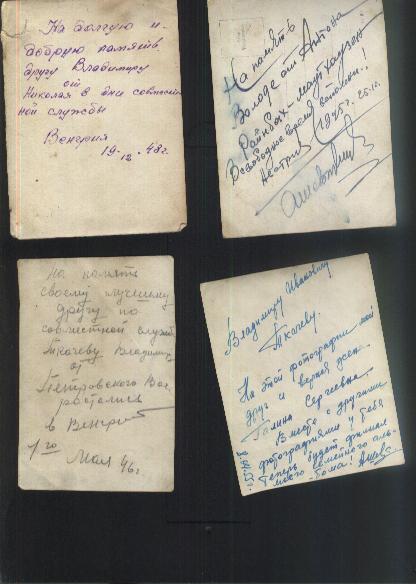 На долгую и
добрую память
другу Владимиру
от
Николая в дни совмест
ной службы
Венгрия
19-12.48г.
На память
Володе от Антона
В свободное время
1945г. 25.10.
На память
своему лучшему
другу по
совместной служб
Ткачеву Владимир
от
Петровского Вас
расстались
в Венгрии
1го
Мая 46г
Владимиру Ивановичу
Ткачеву.
На этой фотографии мой
друг и верная жена
Галина Сергеевна.
Вместе с другими
фотографиями у тебя
теперь будет филиал
моего семейного аль-
бома!